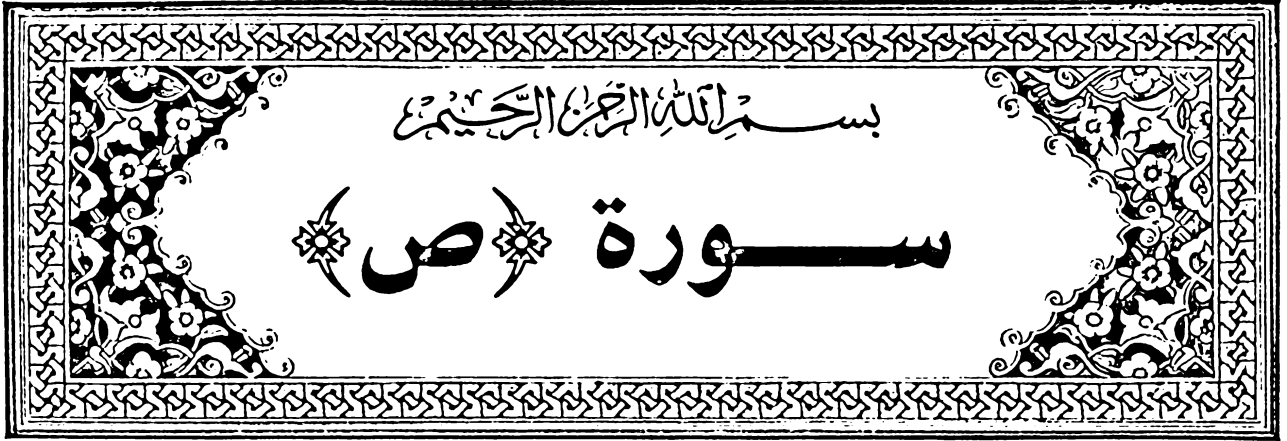 بسم الله الرحمن الرحيم
ســورة ﴿ص﴾